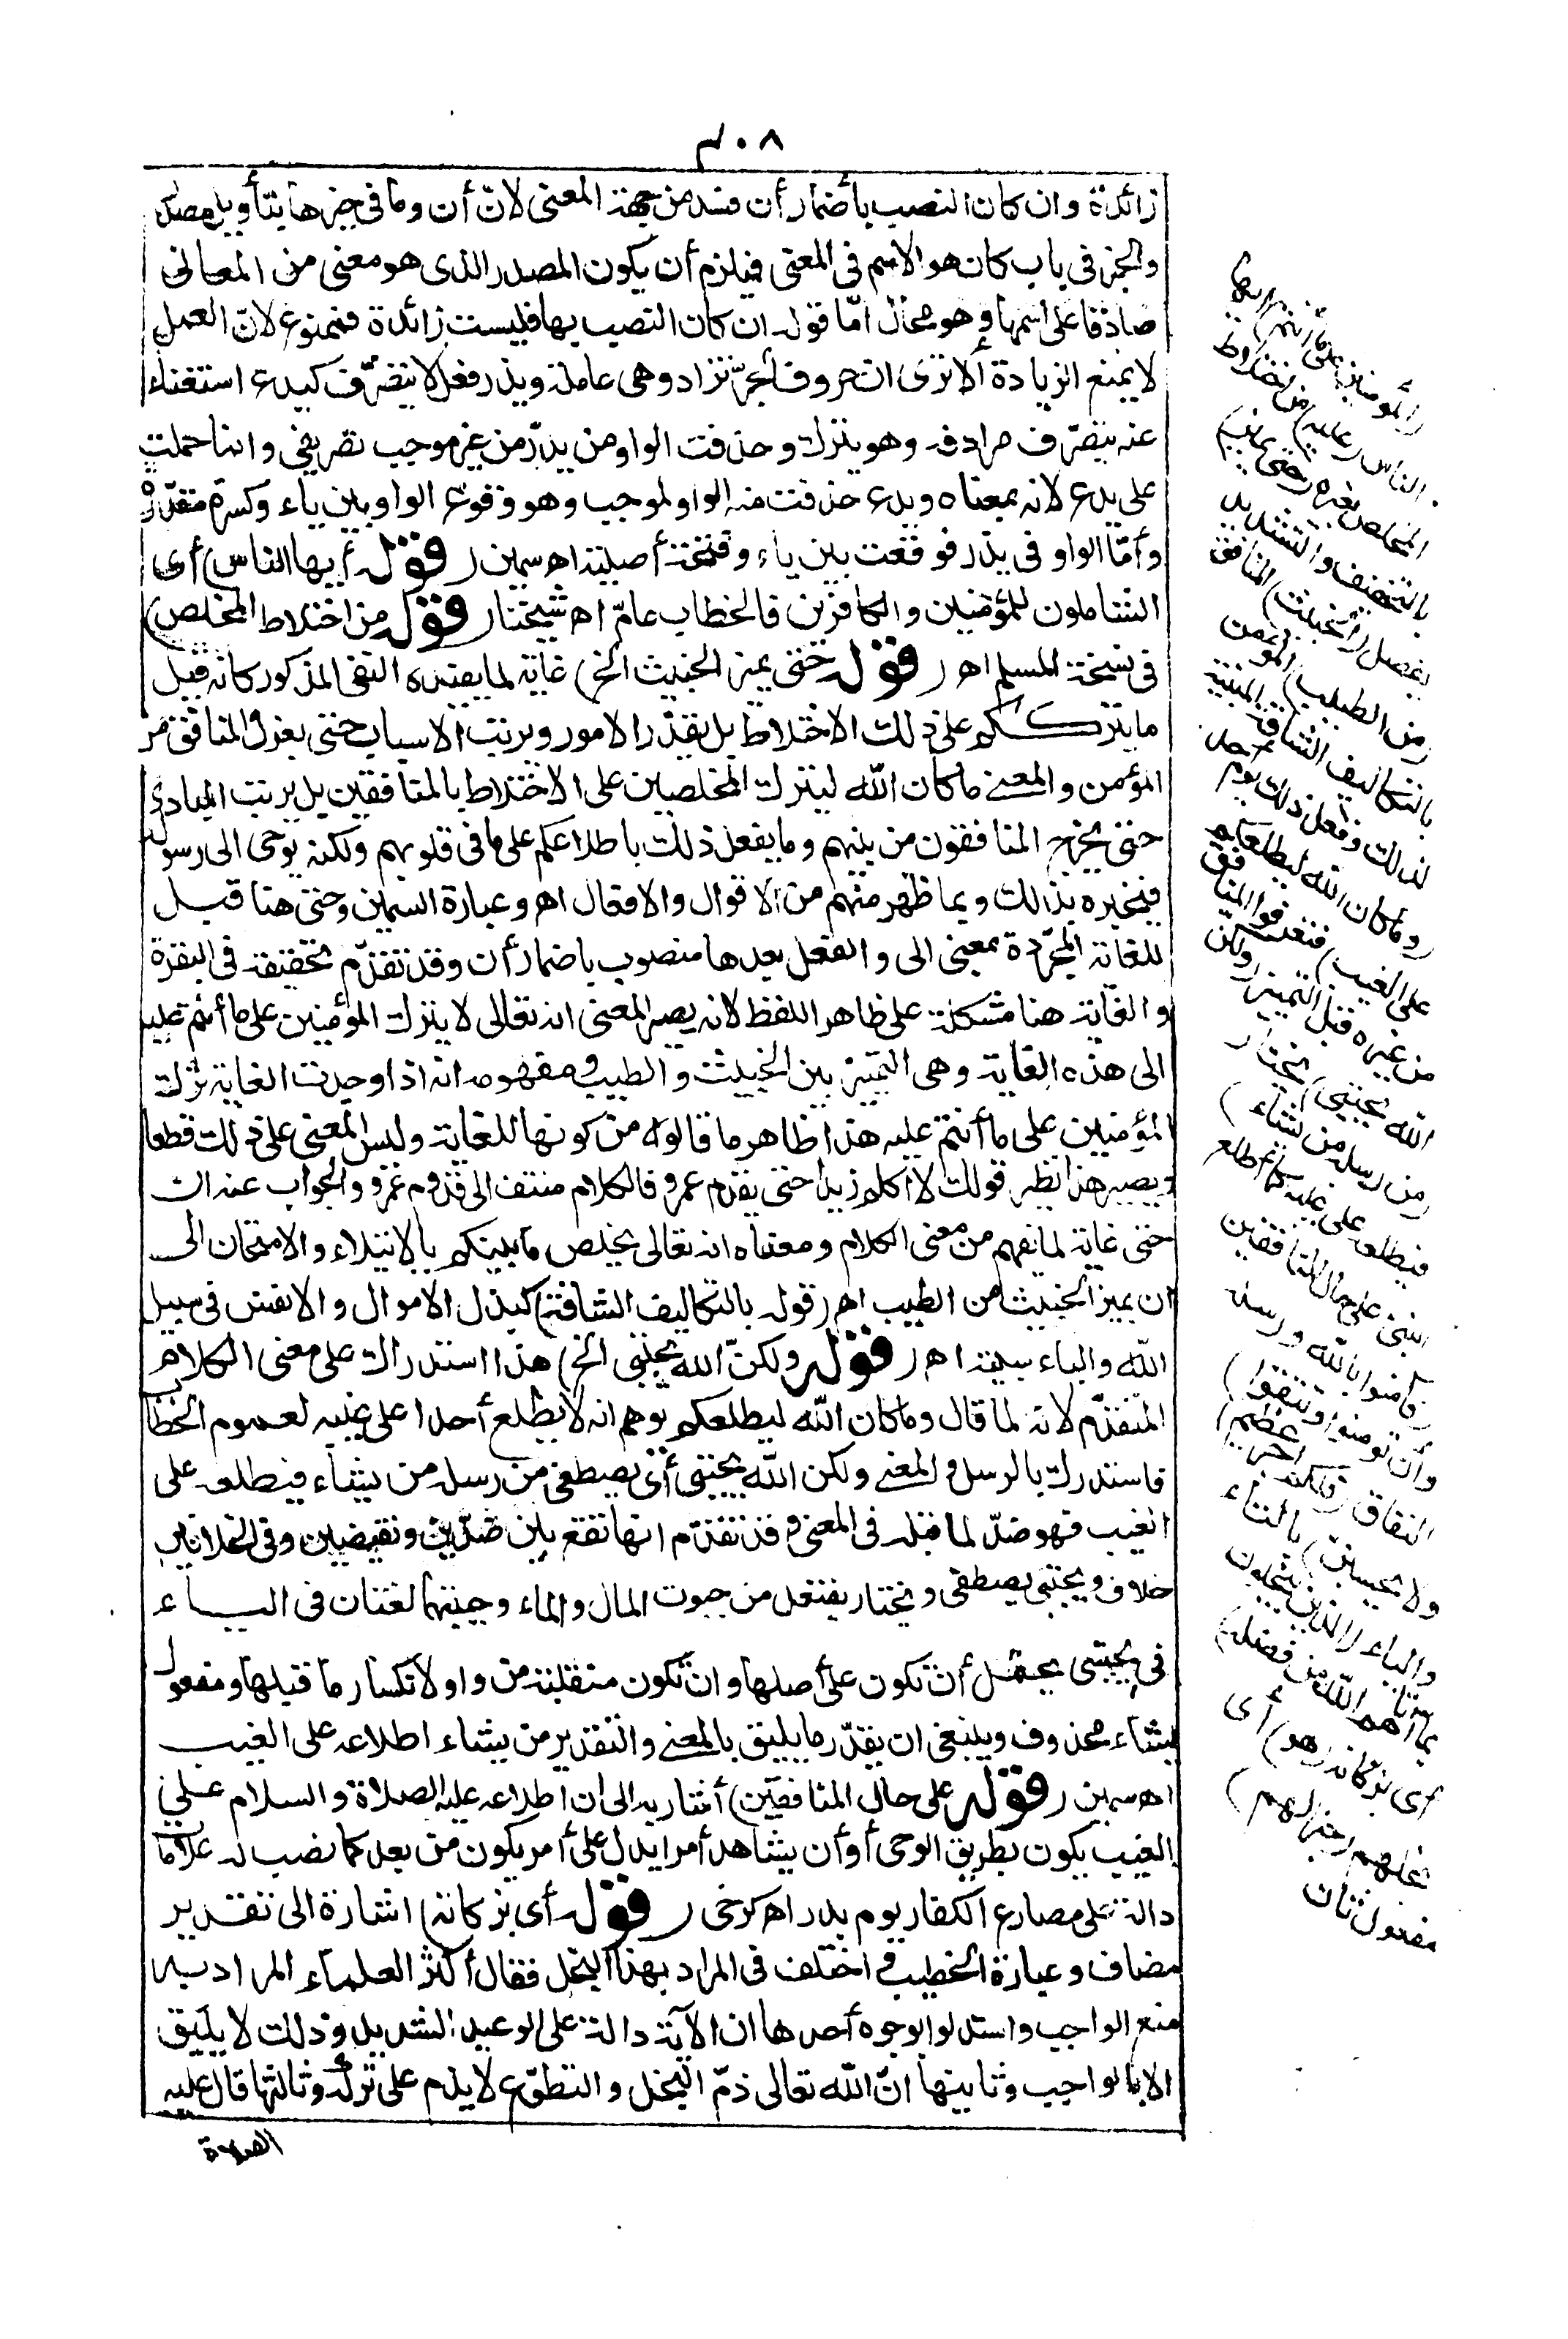 ٣٠٨
زائدة وان كان النصب باضمار أن فسد من جهة المعنى لانّ أن وما فى حيزها بتأويل مصدر
والخبر فى باب كان هو الاسم فى المعنى فيلزم أن يكون المصدر الذى هو معنى من المعانى
صادقا على اسمها وهو محال أمّا قوله ان كان النصب بها فليست زائدة فممنوع لانّ العمل
لا يمنع الزيادة ألا ترى انّ حروف الجرّ تزاد وهى عاملة ويذر فعل لا يتصرّف كيدع استغناء
عنه بتصرّف مرادفه وهو يترك وحذفت الواو من يذر من غير موجب تصريفى وانما حملت
على يدع لانه بمعناه ويدع حذفت منه الواو لموجب وهو وقوع الواو بين ياء وكسرة مقدّرة
وأمّا الواو فى يذر فوقعت بين ياء وفتحة أصلية اه سمين (قوله أيها الناس) أى
الشاملون للمؤمنين والكافرين فالخطاب عامّ اه شيخنا (قوله من اختلاط المخلص)
فى نسخة المسلم اه (قوله حتى يميز الخبيث الخ) غاية لما يفيده النفى المذكور كانه قيل
ما يترككم على ذلك الاختلاط بل يقدّر الامور ويرتب الاسباب حتى يعزل المنافق من
المؤمن والمعنى ما كان الله ليترك المخلصين على الاختلاط بالمنافقين بل يرتب المبادى
حتى يخرج المنافقون من بينهم وما يفعل ذلك باطلاعكم على ما فى قلوبهم ولكنه يوحى الى رسوله
فيخبره بذلك وبما ظهر منهم من الاقوال والافعال اه وعبارة السمين وحتى هنا قيل
للغاية المجرّدة بمعنى الى والفعل بعدها منصوب باضمار أن وقد تقدّم تحقيقه فى البقرة
والغاية هنا مشكلة على ظاهر اللفظ لانه يصير المعنى انه تعالى لا يترك المؤمنين على ما أنتم عليه
الى هذه الغاية وهى التمييز بين الخبيث والطيب ومفهومه انه اذا وجدت الغاية ترك
المؤمنين على ما أنتم عليه هذا ظاهر ما قالوه من كونها للغاية وليس المعنى على ذلك قطعا
ويصير هذا نظير قولك لا أكلم زيدا حتى يقدم عمرو فالكلام منتف الى قدوم عمرو والجواب عنه انّ
حتى غاية لما يفهم من معنى الكلام ومعناه انه تعالى يخلص ما بينكم بالابتلاء والامتحان الى
ان يميز الخبيث من الطيب اه (قوله بالتكاليف الشاقة) كبذل الاموال والانفس فى سبيل
الله والباء سببية اه (قوله ولكنّ الله يجتبى الخ) هذا استدراك على معنى الكلام
المتقدّم لانه لما قال وما كان الله ليطلعكم يوهم انه لا يطلع أحدا على غيبه لعموم الخطاب
فاستدرك بالرسل والمعنى ولكن الله يجتبى أى يصطفى من رسله من يشاء فيطلعه على
الغيب فهو ضدّ لما قبله فى المعنى وقد تقدّم انها تقع بين ضدّين ونقيضين وفى الخلافين
خلاف ويجتبى يصطفى ويختار يفتعل من جبوت المال والماء وجبيتهما لغتان فى الياء
فى يجتبى يحتمل أن تكون على أصلها وان تكون منقلبة من واو لانكسار ما قبلها ومفعول
يشاء محذوف وينبغى ان يقدّر ما يليق بالمعنى والتقدير من يشاء اطلاعه على الغيب
اه سمين (قوله على حال المنافقين) أشار به الى ان اطلاعه عليه الصلاة والسلام على
الغيب يكون بطريق الوحى أو أن يشاهد أمرا يدل على أمر يكون من بعد كما نصب له علاما
دالة على مصارع الكفار يوم بدر اه كرخى (قوله أى بزكاته) اشارة الى تقدير
مضاف وعبارة الخطيب اختلف فى المراد بهذا البخل فقال أكثر العلماء المراد به
منع الواجب واستدلوا بوجوه أحدها ان الآية دالة على الوعيد الشديد وذلك لا يليق
الا بالواجب وثانيها انّ الله تعالى ذمّ البخل والتطوّع لا يذم على تركه وثالثها قال عليه
الصلاة
(المؤمنين على ما أنتم) أيها
الناس (عليه) من اختلاط
المخلص بغيره (حتى يميز)
بالتخفيف والتشديد
يفصل (الخبيث) المنافق
(من الطيب) المؤمن
بالتكاليف الشاقة المبينة
لذلك وفعل ذلك يوم أحد
(وما كان الله ليطلعكم
على الغيب) فتعرفوا المنافق
من غيره قبل التمييز (ولكنّ
الله يجتبى) يختار
(من رسله من يشاء)
فيطلعه على غيبه كما أطلع
النبى على حال المنافقين
(فآمنوا بالله ورسله
وان تؤمنوا وتتقوا)
النفاق (فلكم أجر عظيم)
ولا تحسبنّ) بالتاء
والياء (الذين يبخلون
بما آتاهم الله من فضله)
أى بزكاته (هو) أى
بخلهم (خيرا لهم)
مفعول ثان